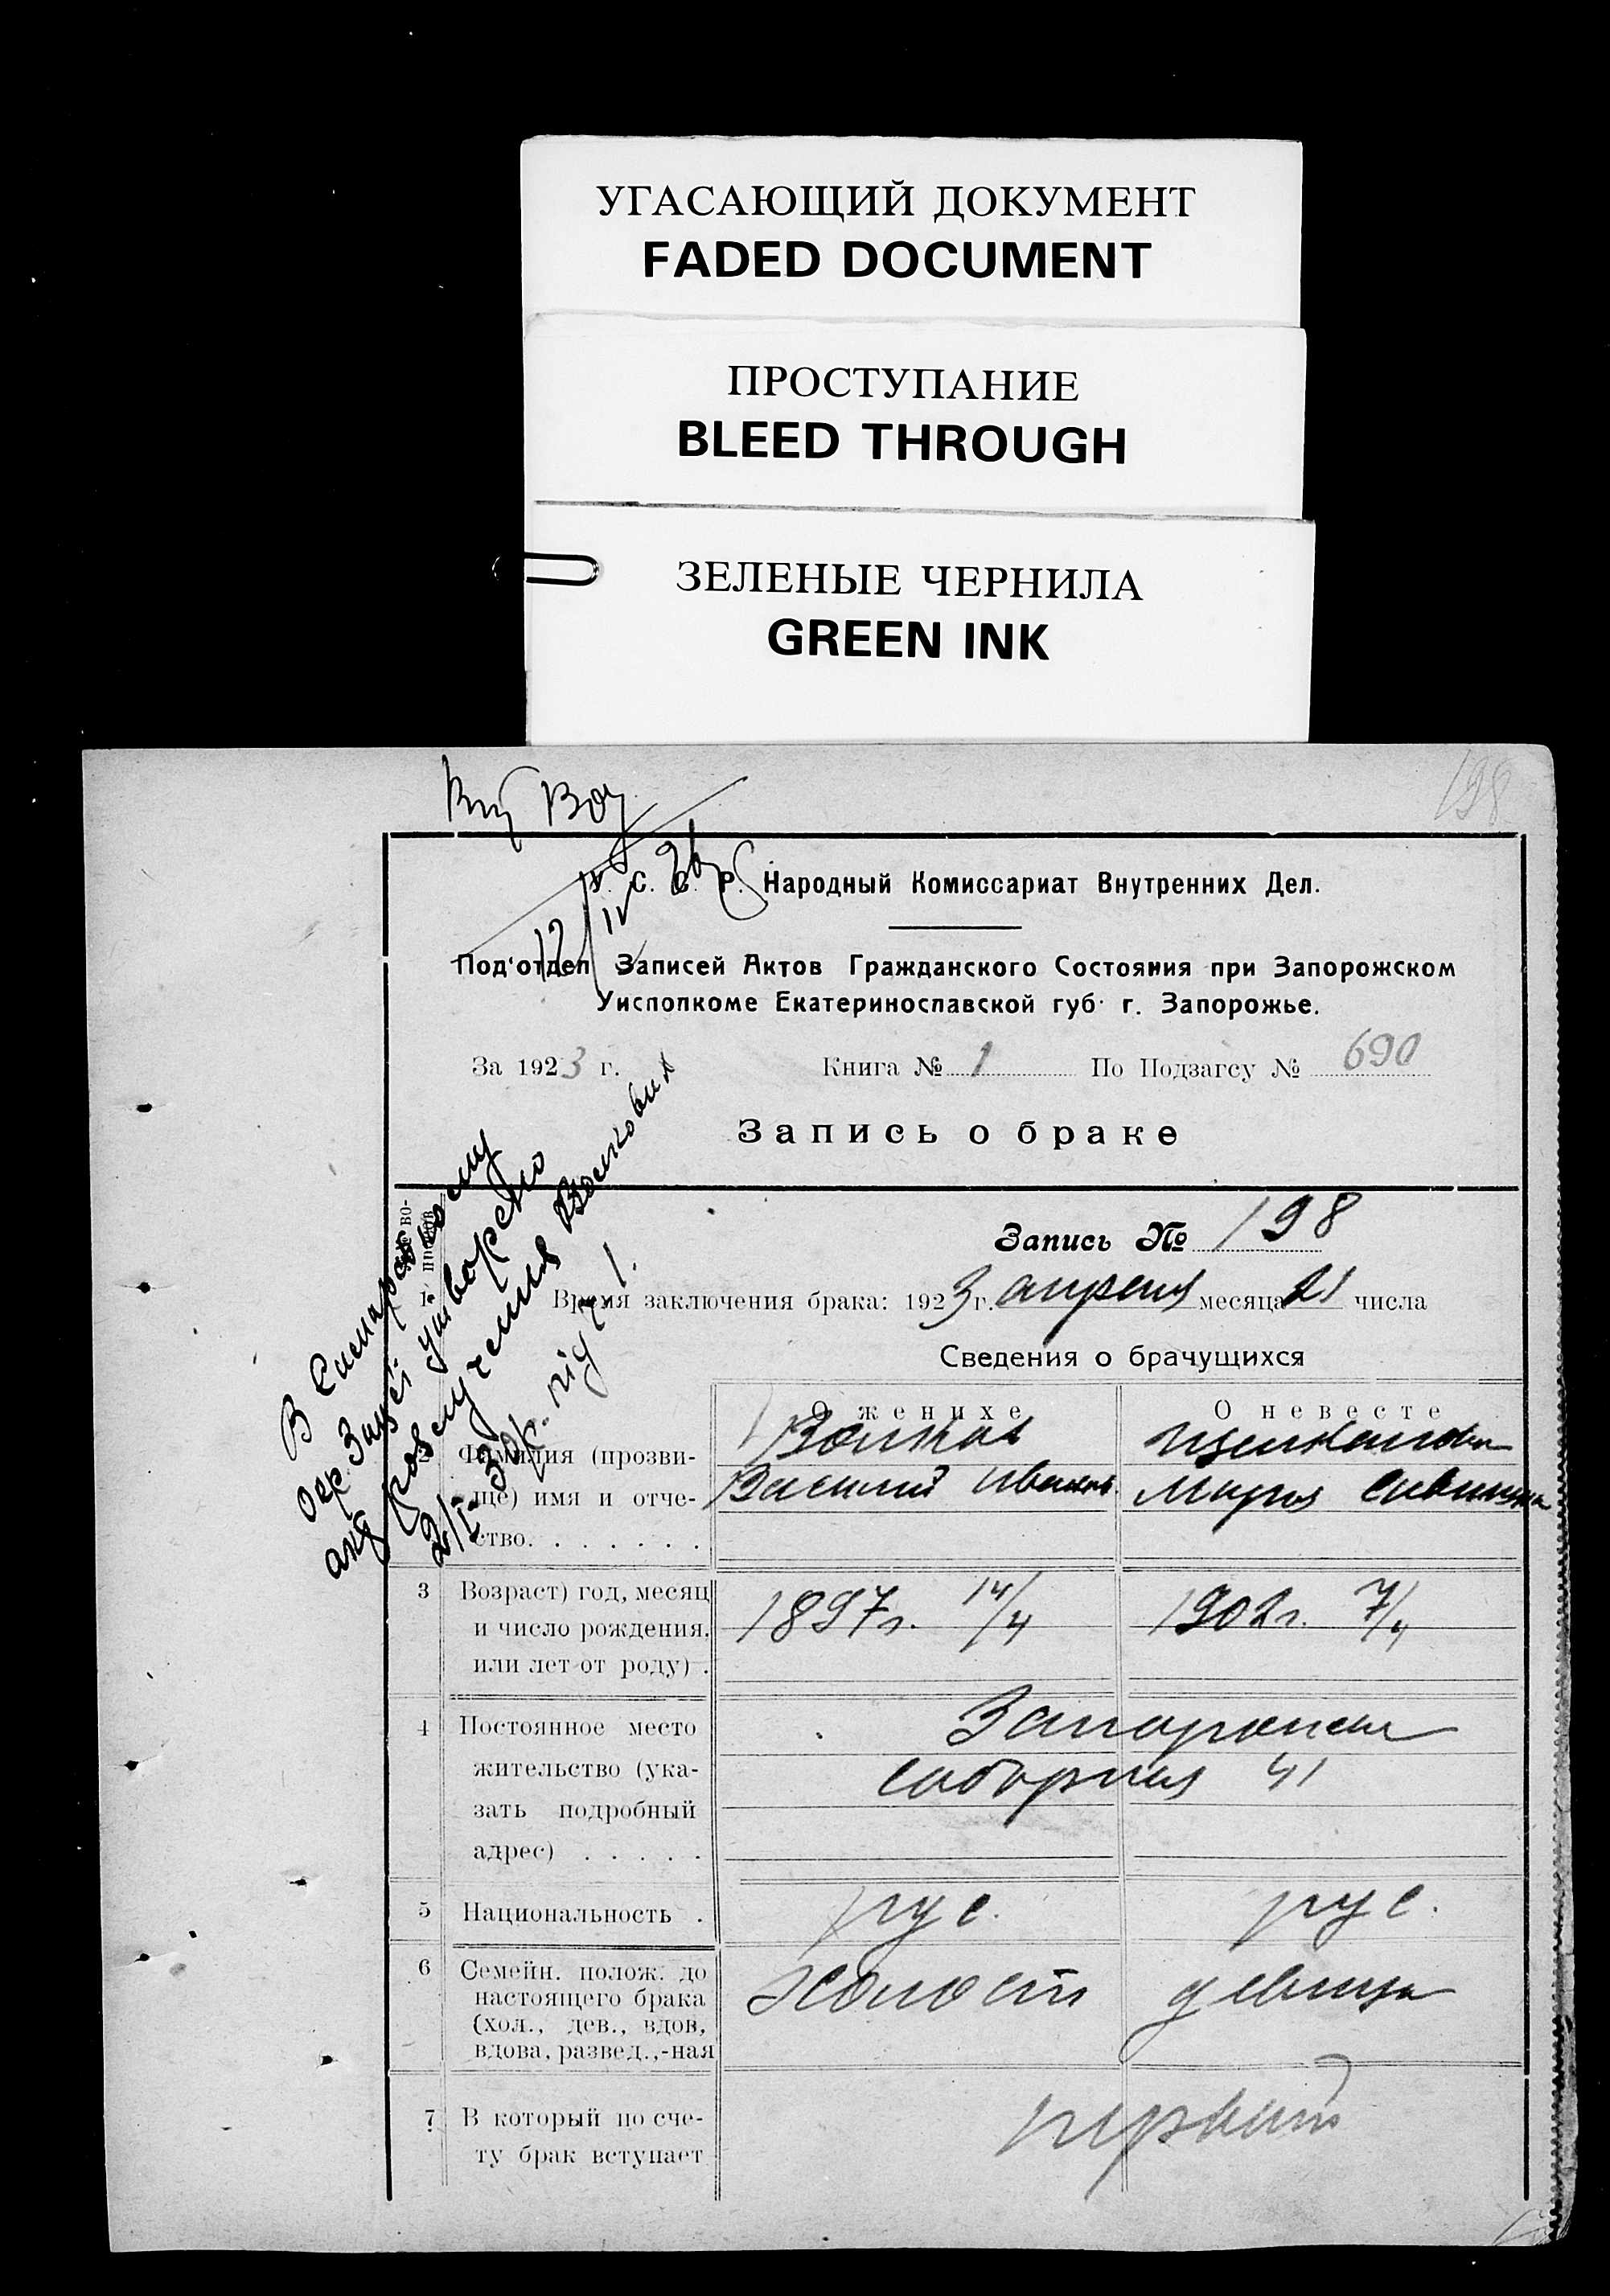 УГАСАЮЩИЙ ДОКУМЕНТ
FADED DOCUMENT
ПРОСТУПАНИЕ
BLEED THROUGH
ЗЕЛЕНЫЕ ЧЕРНИЛА
GREEN INK
198
С. Р. Народный Комиссариат Внутренних Дел.
Под'отдел Записей Актов Гражданского Состояния при Запорожском
Уисполкоме Екатеринославской губ. г. Запорожье.
За 1923 г. Книга № 1 По Подзагсу № 690
Запись о браке
Запись № 198
1 Время заключения брака: 1923 г. апреля месяца 21 числа
Сведения о брачущихся
О женихе О невесте
2 Фамилия (прозви-
ще) имя и отче-
ство. . . . . . .
Волков
Василий Иванов.
Мария
3 Возраст) год, месяц
и число рождения.
или лет от роду) .
1897г. 14/4 1902г. 7/4
4 Постоянное место
жительство (ука-
зать подробный
адрес) . . . . .
Запорожье
Соборная 41
5 Национальность . рус. рус.
6 Семейн. полож. до
настоящего брака
(хол., дев., вдов,
вдова, развед.,-ная
холост девица
7 В который по сче-
ту брак вступает
первый